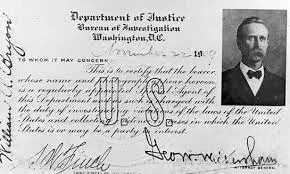 Department of Justice
Bureau of Investigation
Washington, D.C.
November 22 19
TO WHOM IT MAY CONCERN:
This is to certify that the bearer,
whose name and photograph appear hereon,
is a regularly appointed Special Agent of
this Department and as such is charged with
the duty of investigating violations of the laws of the United
States and collecting evidence in cases in which the United
States is or may be a party in interest.
U.S.
Geo. W. Wickersham
ATTORNEY GENERAL